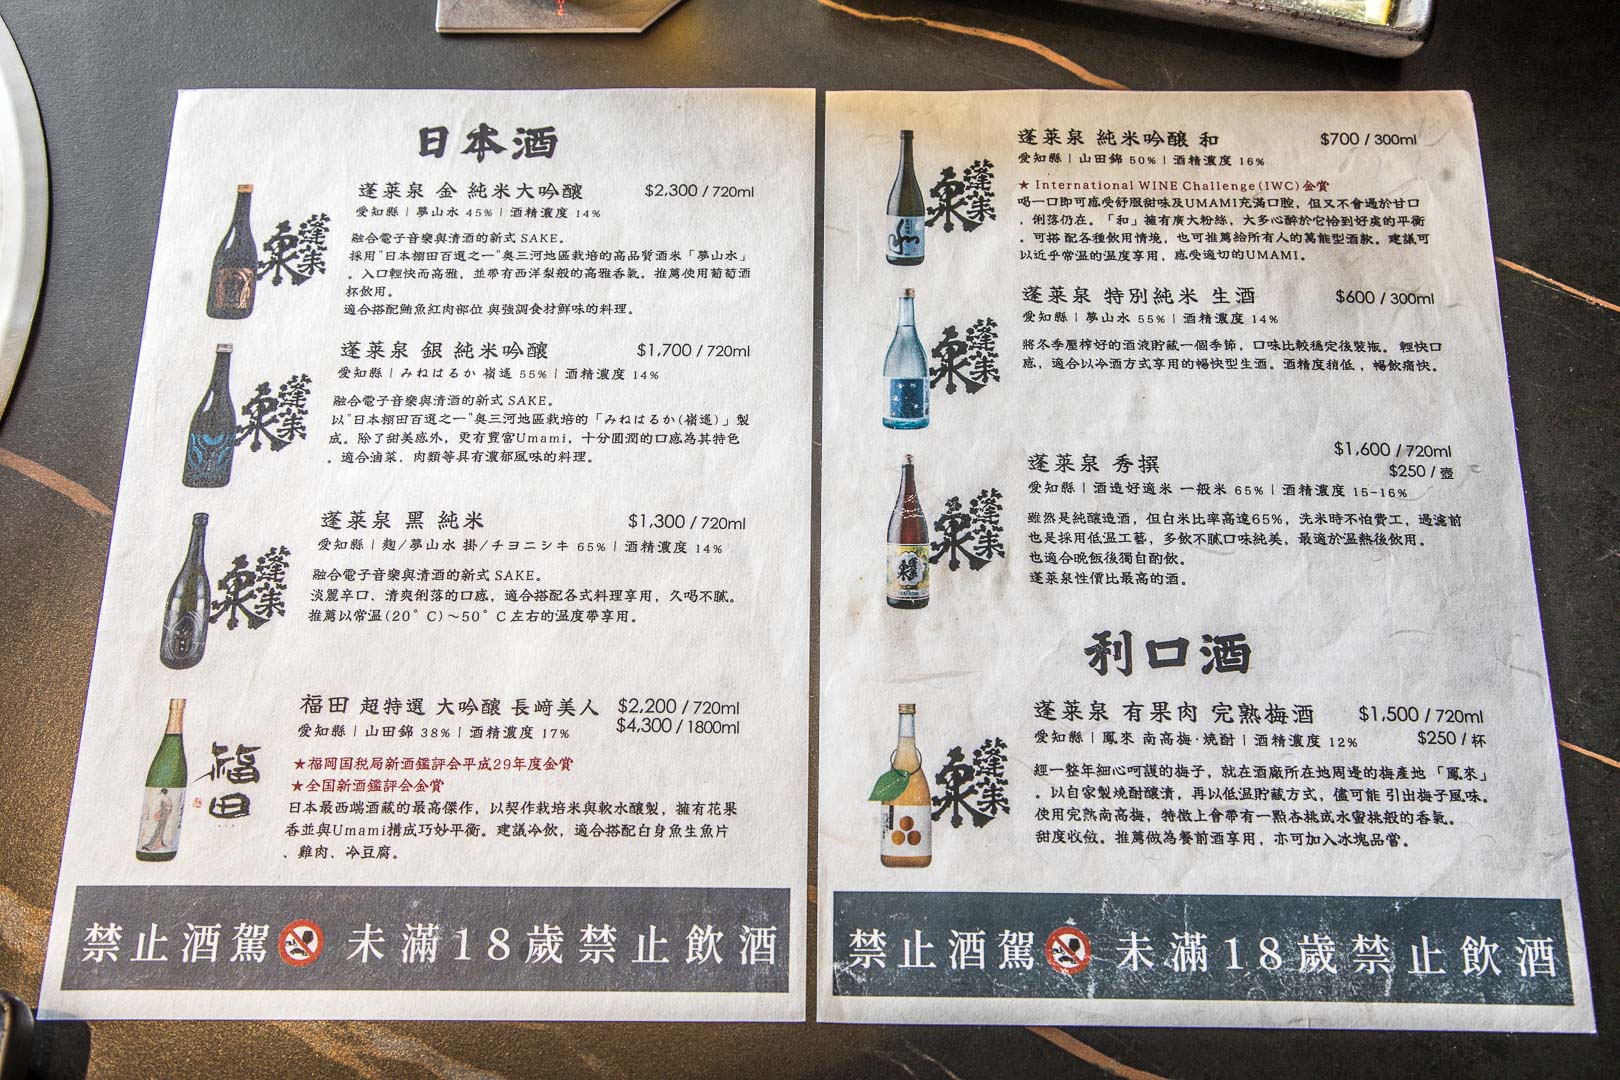 日本酒
蓬莱泉 金 純米大吟釀 $2,300 / 720ml
愛知縣 | 夢山水 45% | 酒精濃度 14%
融合電子音樂與清酒的新式 SAKE。
採用"日本棚田百選之一"奧三河地區栽培的高品質酒米「夢山水」
。入口輕快而高雅，並帶有西洋梨般的高雅香氣。推薦使用葡萄酒
杯飲用。
適合搭配鮪魚紅肉部位 與強調食材鮮味的料理。
蓬莱泉
蓬莱泉 銀 純米吟釀 $1,700 / 720ml
愛知縣 | みねはるか 嶺遙 55% | 酒精濃度 14%
融合電子音樂與清酒的新式 SAKE。
以"日本棚田百選之一"奧三河地區栽培的「みねはるか(嶺遙)」製
成。除了甜美感外，更有豐富Umami，十分圓潤的口感為其特色
。適合滷菜、肉類等具有濃郁風味的料理。
蓬莱泉
蓬莱泉 黑 純米 $1,300 / 720ml
愛知縣 | 麴/夢山水 掛/チヨニシキ 65% | 酒精濃度 14%
融合電子音樂與清酒的新式 SAKE。
淡麗辛口、清爽俐落的口感，適合搭配各式料理享用，久喝不膩。
推薦以常溫(20°C)～50°C左右的温度帶享用。
蓬莱泉
福田 超特選 大吟釀 長崎美人 $2,200 / 720ml
$4,300 / 1800ml
愛知縣 | 山田錦 38% | 酒精濃度 17%
★福岡国税局新酒鑑評会平成29年度金賞
★全国新酒鑑評会金賞
日本最西端酒藏的最高傑作，以契作栽培米與軟水釀製，擁有花果
香並與Umami構成巧妙平衡。建議冷飲，適合搭配白身魚生魚片
、雞肉、冷豆腐。
福田
禁止酒駕 未滿18歲禁止飲酒
蓬莱泉 純米吟釀 和 $700 / 300ml
愛知縣 | 山田錦 50% | 酒精濃度 16%
★ International WINE Challenge(IWC)金賞
喝一口即可感受舒服甜味及UMAMI充滿口腔，但又不會過於甘口
，俐落仍在。「和」擁有廣大粉絲，大多心醉於它恰到好處的平衡
。可搭配各種飲用情境，也可推薦給所有人的萬能型酒款。建議可
以近乎常温的温度享用，感受適切的UMAMI。
蓬莱泉
和
蓬莱泉 特別純米 生酒 $600 / 300ml
愛知縣 | 夢山水 55% | 酒精濃度 14%
將冬季壓榨好的酒液貯藏一個季節，口味比較穩定後裝瓶。 輕快口
感，適合以冷酒方式享用的暢快型生酒。酒精度稍低，暢飲痛快。
蓬莱泉
蓬莱泉 秀撰 $1,600 / 720ml
$250 / 壺
愛知縣 | 酒造好適米 一般米 65% | 酒精濃度 15-16%
雖然是純釀造酒，但白米比率高達65%，洗米時不怕費工，過濾前
也是採用低温工藝，多飲不膩口味純美，最適於温熱後飲用。
也適合晚飯後獨自酌飲。
蓬莱泉性價比最高的酒。
蓬莱泉
利口酒
蓬莱泉 有果肉 完熟梅酒 $1,500 / 720ml
愛知縣 | 鳳來 南高梅·燒酎 | 酒精濃度 12% $250 / 杯
經一整年細心呵護的梅子，就在酒廠所在地周邊的梅產地 「鳳來」
。以自家製燒酎釀漬，再以低温貯藏方式，儘可能 引出梅子風味。
使用完熟南高梅，特徵上會帶有一點杏桃或水蜜桃般的香氣。
甜度收斂。推薦做為餐前酒享用，亦可加入冰塊品嘗。
蓬莱泉
禁止酒駕 未滿18歲禁止飲酒